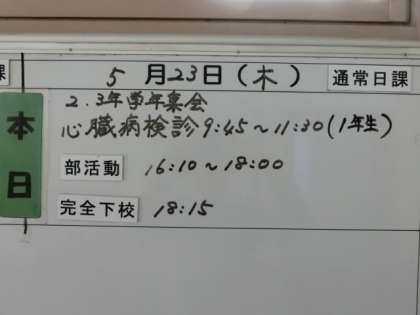 課
5月23日(木) 通常日課
本日
2.3年学年集会
心臓病検診9:45~11:30(1年生)
部活動 16:10~18:00
完全下校 18:15